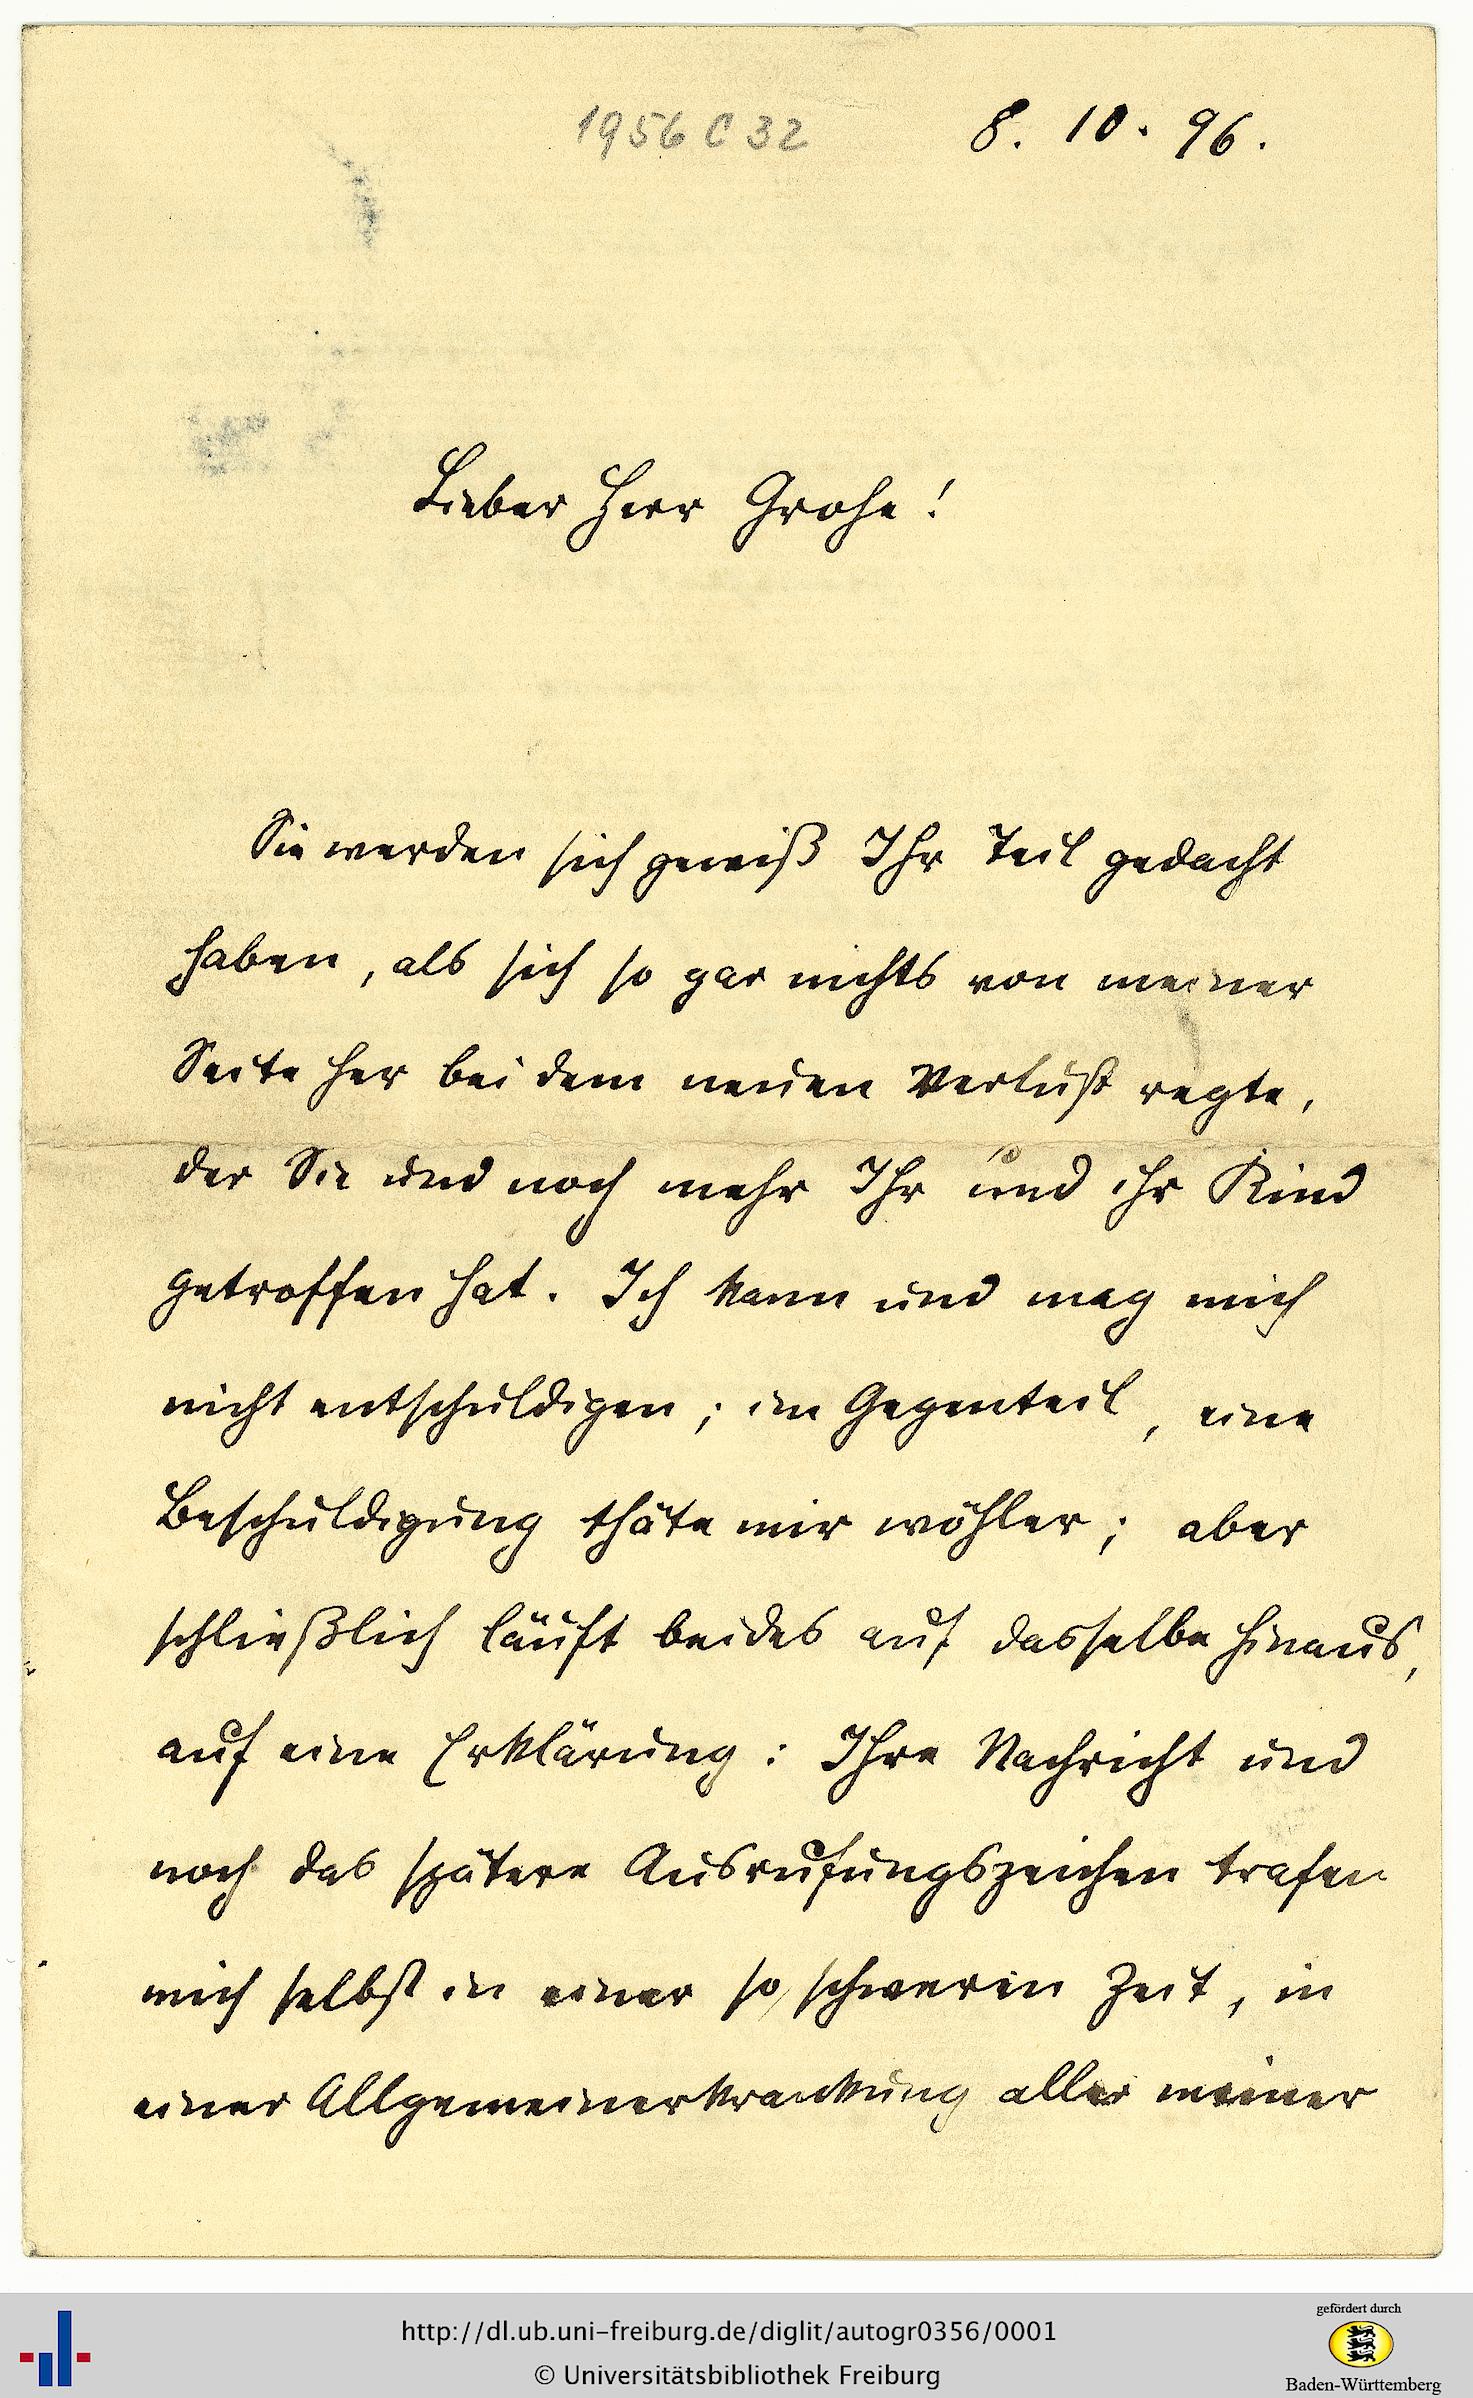 1956 C 32
8. 10. 96.
Lieber Herr Grohe!
Sie werden sich gewiß Ihr Teil gedacht
haben, als sich so gar nichts von meiner
Seite her bei dem neuen Verlust regte,
der Sie und noch mehr Ihr und ihr Kind
getroffen hat. Ich kann und mag mich
nicht entschuldigen; im Gegenteil, eine
Beschuldigung thäte mir wöhler; aber
schließlich läuft beides auf dasselbe hinaus,
auf eine Erklärung: Ihre Nachricht und
noch das spätere Ausrufungszeichen trafen
mich selbst in einer so schweren Zeit, in
einer Allgemeinerkrankung aller meiner
http://dl.ub.uni-freiburg.de/diglit/autogr0356/0001
© Universitätsbibliothek Freiburg
gefördert durch
Baden-Württemberg